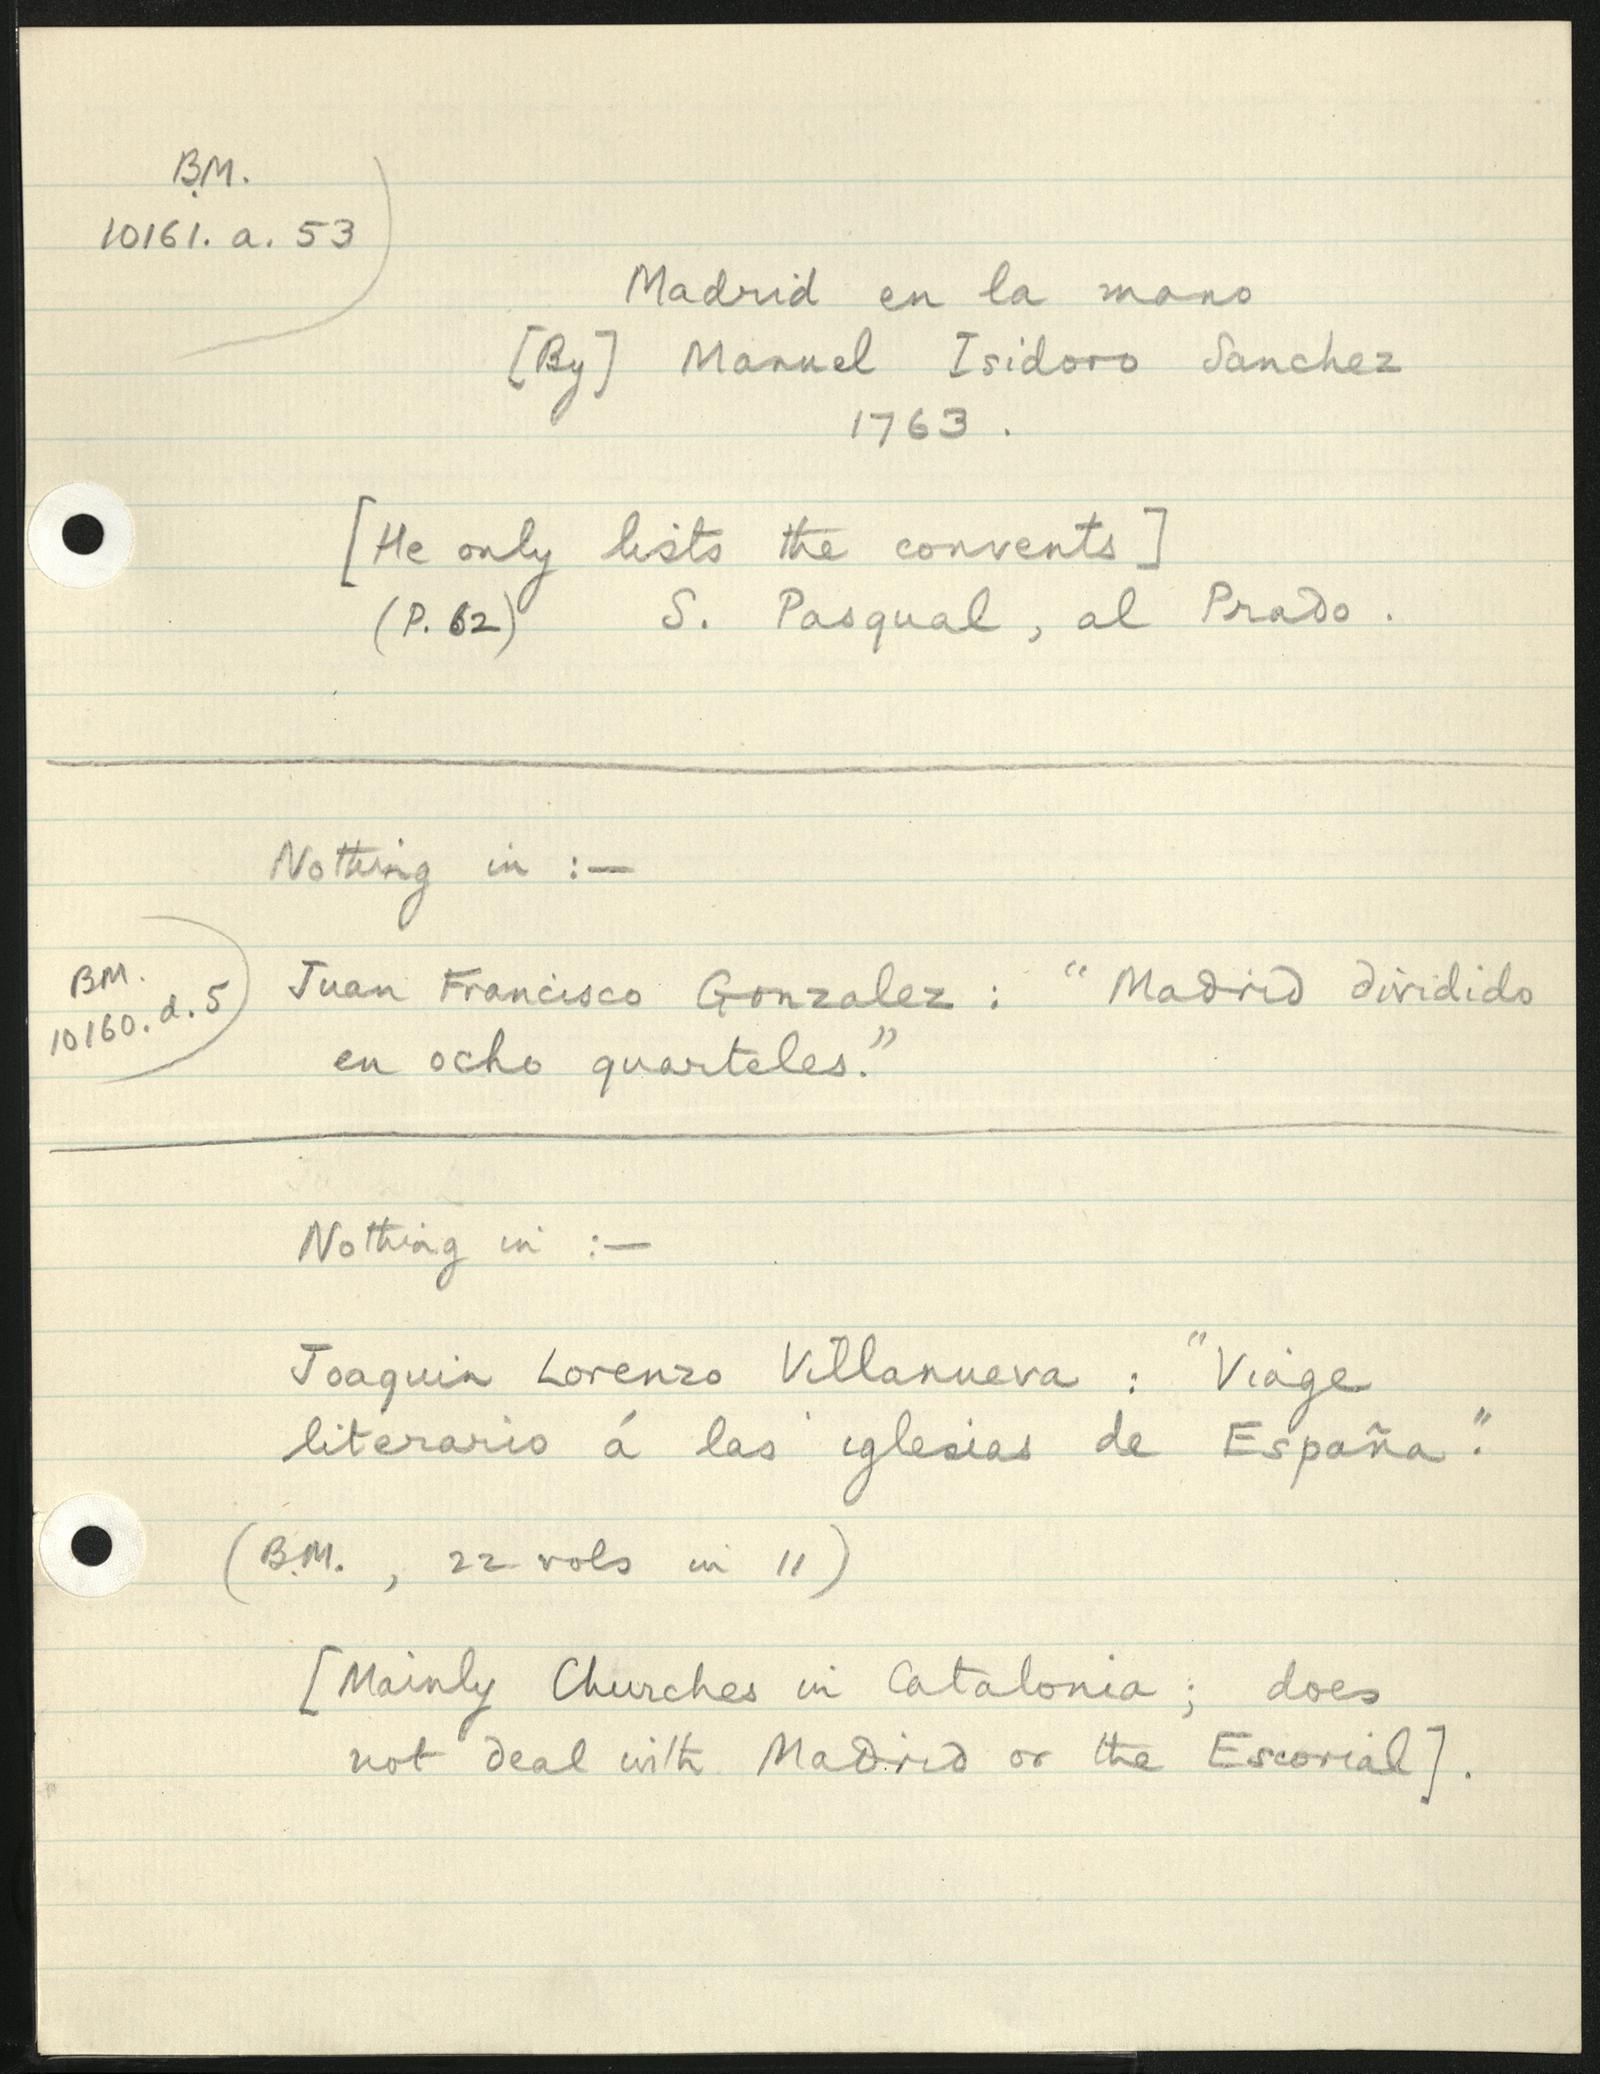 B.M.
10161. a. 53
Madrid en la mano
[By] Manuel Isidoro Sanchez
1763.
[He only lists the convents]
(P. 62) S. Pasqual, al Prado.
Nothing in :—
BM.
10160. d. 5
Juan Francisco Gonzalez : "Madrid dividido
en ocho quarteles."
Nothing in :—
Joaquin Lorenzo Villanueva : "Viage
literario á las iglesias de España".
(B.M. , 22 vols in 11)
[Mainly Churches in Catalonia ; does
not deal with Madrid or the Escorial].